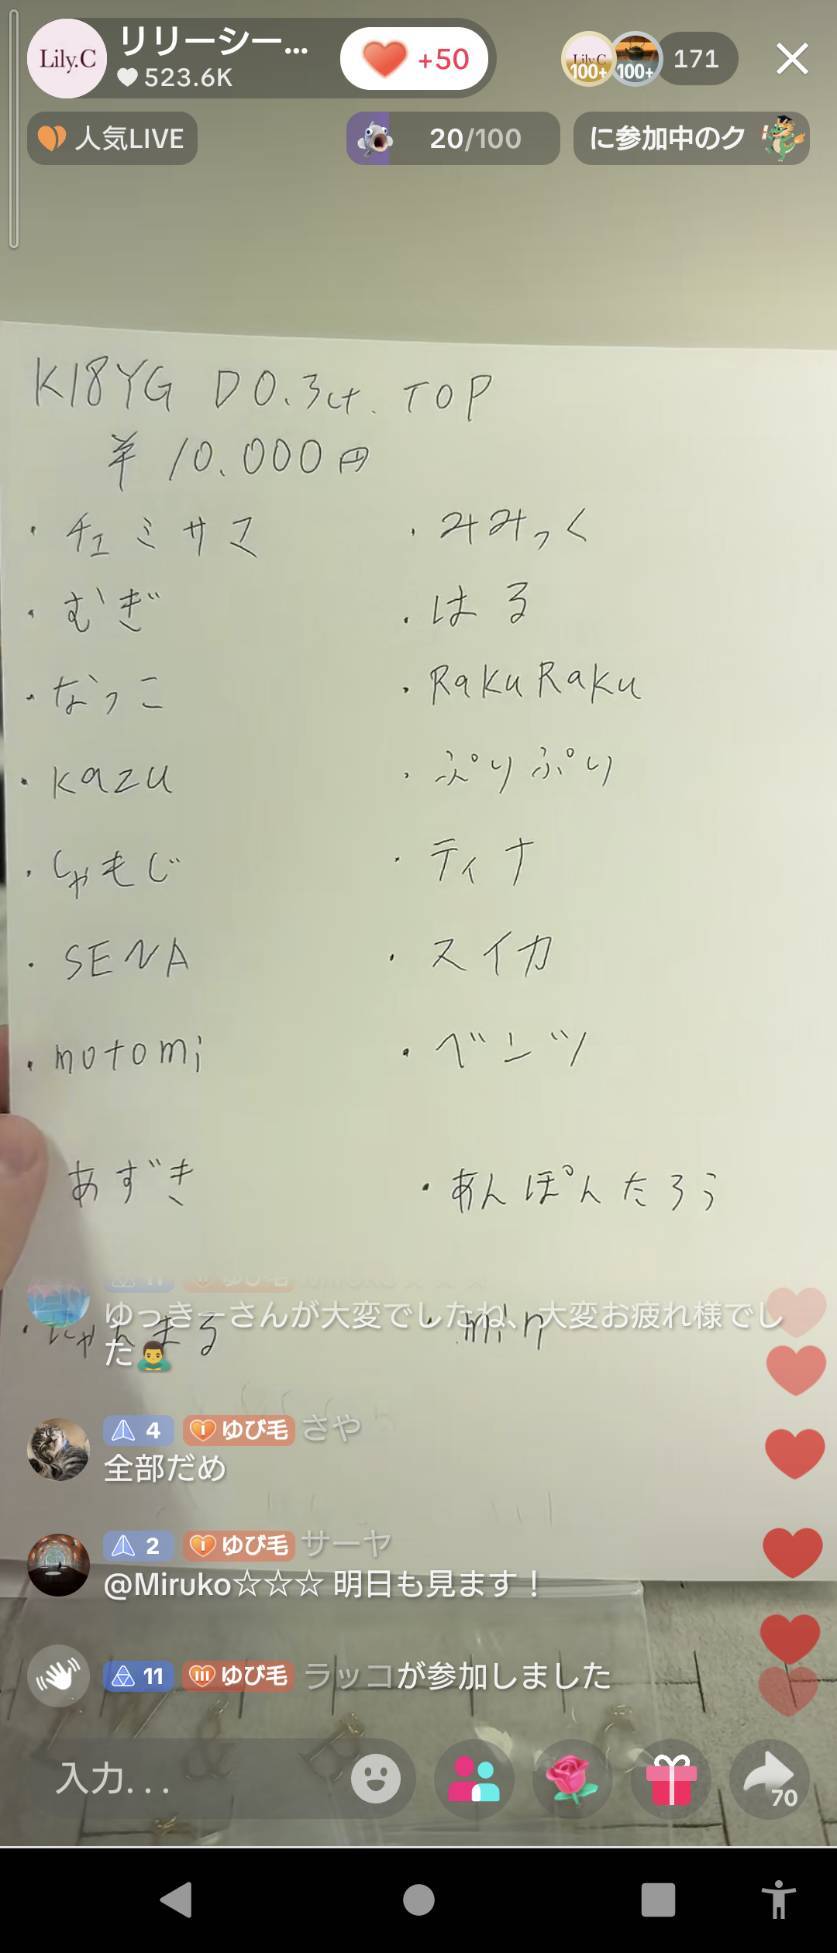 Lily.C
リリーシー...
523.6K
+50
Lily.C
100+
100+
171
人気LIVE
20/100
に参加中のク
K18YG D0.3ct. TOP
¥10.000円
・チェミサマ
・みみっく
・むぎ
・はる
・なっこ
・RakuRaku
・kazu
・ぷりぷり
・しゃもじ
・ティナ
・SENA
・スイカ
・motomi
・ベンツ
あずき
・あんぽんたろう
・にゃんまる
ゆっきーさんが大変でしたね、大変お疲れ様でし
た🙇‍♂️
4 ゆび毛 さや
全部だめ
2 ゆび毛 サーヤ
@Miruko☆☆☆ 明日も見ます！
11 ゆび毛 ラッコが参加しました
入力...
70